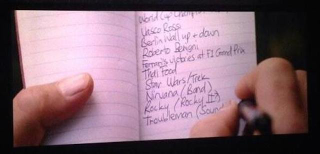 World Cup Champion
Vasco Rossi
Berlin Wall up + down
Roberto Benigni
Ferrari's victories at F1 Grand Prix
Thai food
Star Wars/Trek
Nirvana (Band)
Rocky (Rocky II)
Troubleman (Soun